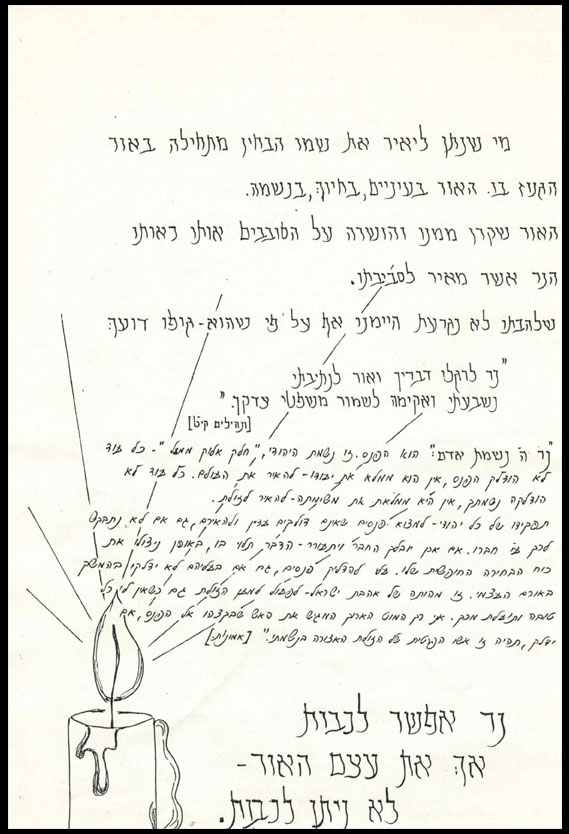 מי שניתן ליאיר את נשמו הבחין מתחילה באור
הגנוז בו. האור בעיניים, בחיוך, בנשמה.
האור שקרן ממנו והושרה על הסובבים אותו כאותו
הנר אשר מאיר לסביבתו.
שלהבתו לא נקרעת היימנו אף על פי שהוא-גופו דועך
"נר לרגלי דבריך ואור לנתיבתי
נשבעתי ואקימה לשמור משפטי צדקך."
[תהילים קי"ט]
"נר ה' נשמת אדם" הוא הפנס. זו נשמת היהודי, "חלק אלוק ממעל"- כל עוד
לא הודלק הפנס, אין הוא ממלא את יעודו- להאיר את העולם. כל עוד לא
הודלקה נשמתך, אין היא ממלאת את משימתה- להאיר לזולת.
תפקידו של כל יהודי- למצוא פנסים שאינם דולקים עדין ולהאירם, גם אם לא נתבקש
לכך ע"י חברו. אם אכן יודלק החבר ויתעורר- הדבר תלוי בו, באופן ניצולו את
כוח הבחירה החופשית שלו. עלי להדליק פנסים, גם אם בעליהם לא ידליקו בהמשך
באורם העצמי. זו מהותה של אהבת ישראל- לפעול למען הזולת גם כשאין לי כל
טובה ותועלת מכך. אני רק המוט הארוך המגיש את האש שבקצהו אל הפנס, אם
ידלק, תהיה זו אשו הפרטית של הזולת האצורה בנשמתו."
נר אפשר לכבות
אך את עצם האור-
לא ניתן לכבות.